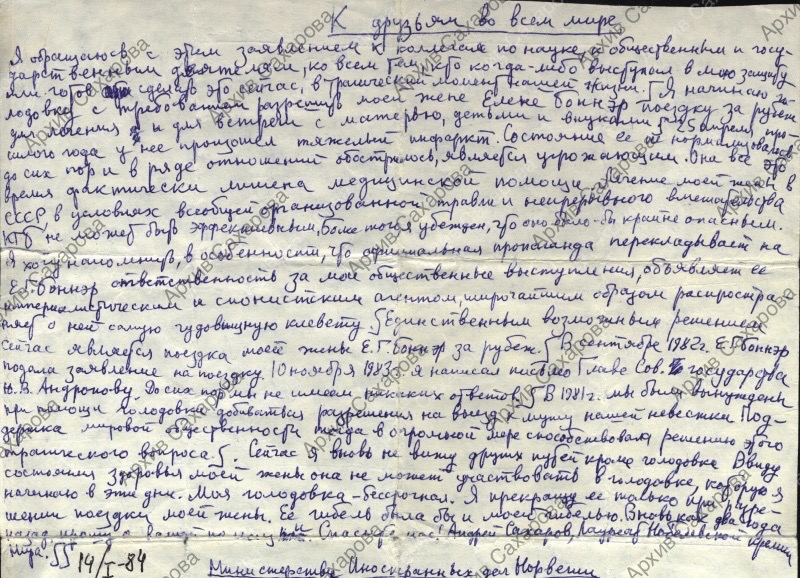 К друзьям во всем мире
Я обращаюсь с этим заявлением к коллегам по науке, к общественным и госу-
дарственным деятелям, ко всем тем, кто когда-либо выступал в мою защиту
или готов сделать это сейчас, в трагический момент нашей жизни. § Я начинаю го-
лодовку с требованием разрешить моей жене Елене Боннэр поездку за рубеж
для лечения и для встречи с матерью, детьми и внуками. § 25 апреля про-
шлого года у нее произошел тяжелый инфаркт. Состояние ее не нормализовалось
до сих пор и в ряде отношений обострилось, является угрожающим. Она все это
время фактически лишена медицинской помощи. Лечение моей жены в
СССР в условиях всеобщей организованной травли и непрерывного вмешательства
КГБ не может быть эффективным, более того я убежден, что оно было-бы крайне опасным.
Я хочу напомнить, в особенности, что официальная пропаганда перекладывает на
Е.Г. Боннэр ответственность за мои общественные выступления, объявляет ее
империалистическим и сионистским агентом, широчайшим образом распростра-
няет о ней самую чудовищную клевету. § Единственным возможным решением
сейчас является поездка моей жены Е.Г. Боннэр за рубеж. § В сентябре 1982г. Е.Г. Боннэр
подала заявление на поездку. 10 ноября 1983г. я написал письмо Главе Сов. государства
Ю.В. Андропову. До сих пор мы не имеем никаких ответов. § В 1981г. мы были вынуждены
при помощи голодовки добиваться разрешения на выезд к мужу нашей невестки. Под-
держка мировой общественности тогда в огромной мере способствовала решению этого
трагического вопроса. § Сейчас я вновь не вижу других путей кроме голодовки. Ввиду
состояния здоровья моей жены она не может участвовать в голодовке, которую я
начинаю в эти дни. Моя голодовка - бессрочная. Я прекращу ее только при разре-
шении поездки моей жены. Ее гибель была бы и моей гибелью. Вновь как два года
назад прошу о вашей помощи. Спасите нас! Андрей Сахаров, Лауреат Нобелевской премии
Мира. §§ 14/I-84
Министерство Иностранных дел Норвегии
Архив Сахарова